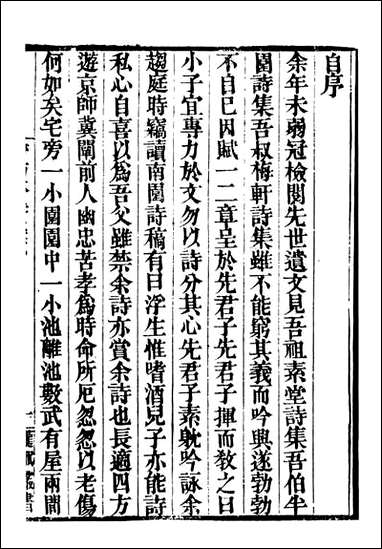 自序
余年未弱冠檢閱先世遺文見吾祖素堂詩集吾伯半
園詩集吾叔梅軒詩集雖不能窮其義而吟興遂勃勃
不自已因賦一二章呈於先君子先君子揮而敎之曰
小子宜專力於文勿以詩分其心先君子素躭吟詠余
趨庭時竊讀南園詩稿有曰浮生惟嗜酒兒子亦能詩
私心自喜以為吾父雖禁余詩亦賞余詩也長適四方
遊京師冀闡前人幽忠苦孝爲時命所厄忽忽以老傷
何如矣宅旁一小園園中一小池離池數武有屋兩間